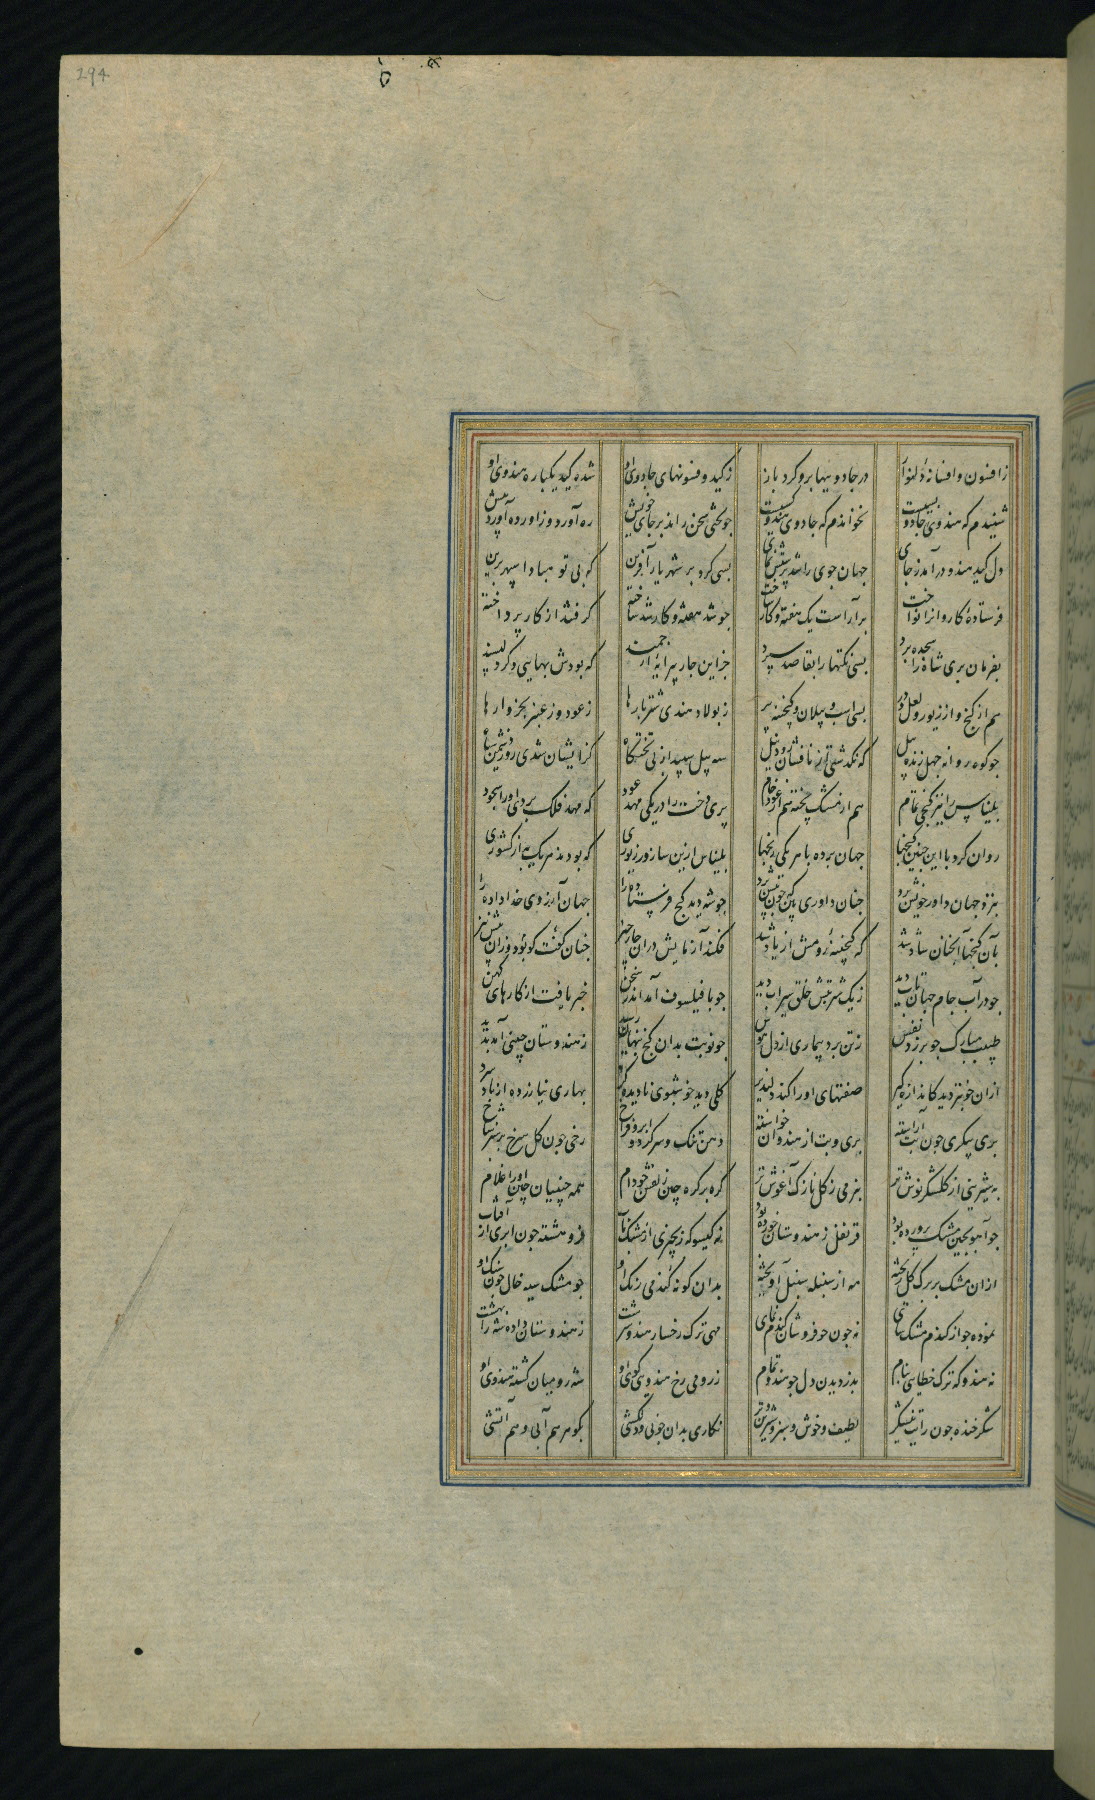 294
ز افسون و افسانهٔ دلنواز در جادوییها برو کرد باز ز کید و فسونهای جادوی او شده کید یکباره هندوی او
شنیدم که هندوی جادو بسیست نخواندم که جادوی هندو کسیست چو لختی سخن راند بر جای خویش ره آورد و زاورده آورد پیش
دل کید هندو درآمد ز جای جهان جوی را شد پرستش نمای بسی کرد بر شهریار آفرین که بی تو مبادا سپهر برین
فرستادهٔ کاردانرا نواخت برآراست یک هفته و کار ساخت چو شد هفته و کار شد ساخته گرفتند از کار پرداخته
بفرمان بری شاه را سجده برد بسی نکتها را بقاصد سپرد جز این چار پیرایهٔ ارجمند که بودش بهایی و کرد پسند
هم از گنج و از زیور و لعل و در بسی اسب و پیلان و گنجینه پر ز پولاد هندی شتربارها ز عود و ز عنبر بخروارها
چو کوه روانه چهل زنده پیل که نگذشتی از نافشان رود نیل سه پیل سپید از پی تختگاه کزایشان شدی روز دشمن سیاه
بلیناس را نیز گنجی تمام هم از مشک پخته هم از عود خام پری دخت را در یکی مهد عود که مهد فلک بردی او را سجود
روان کرد با این چنین گنجها جهان برده با هر یکی رنجها بلیناس ازین ساز و زیوری که بودند هر یک به از کشوری
بنزد جهان داور خویش برد چنان داوری بین که چون پیش برد چو شه دید گنج فرستاده را جهان آرزوی خداداده را
بآن گنجها آنچنان شاد شد که گنجینهٔ رومش از یاد شد فکند آزمایش دران چار چیز چنان کفت کو بود و زان بیش نیز
چو در آب جام جهان تاب دید ز یک شربتش خلق سیراب دید چو با فیلسوف آمد اندر سخن خبر یافت از کارهای کهن
طبیب مبارک چو برزد نفس ز تن برد بیماری از دل هوس چو نوبت بدان گنج پنهان رسید ز هندوستان چینی آمد پدید
ازان خوبتر دید کاندازه گیر صفتهای او را کند دلپذیر گلی دید خوشبوی نادیده گرد بهاری نیازرده از باد سرد
پری پیکری چون بت آراسته پری و بت از هندوان خواسته دهن تنگ و سر گرد و ابرو فراخ رخی چون گل سرخ بر سبز شاخ
به شیرینی از گلشکر نوش تر بنرمی ز گل نازک آغوش تر گره بر گره چین زلفش چو دام همه چینیان چین او را غلام
چو آهو بچین مشک پرورده بود قرنفل ز هندوستان خورده بود نه گیسو که زنجیری از مشک ناب فروهشته چون ابری از آفتاب
ازان مشک بر برگ گل ریخته مه از سنبله سنبل آویخته بدان گونهٔ گندمی رنگ او چو مشک سیه خال جو سنگ او
نموده جو از گندم مشک سای نه چون جو فروشان گندم نمای مهی ترک رخسار هندو سرشت ز هندوستان داده شه را بهشت
نه هندو که ترک خطایی بنام بدزدیدن دل چو هندو تمام ز رومی رخ هندوی گوی او شه رومیان گشته هندوی او
شکر خنده چون راتب نیشکر لطیف و خوش و سبز و شیرین و تر نگاری بدان خوبی و دلکشی بگوهر هم آبی و هم آتشی